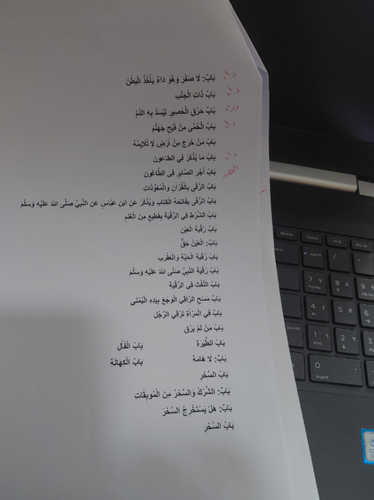 بَابُ: لاَ صَفَرَ وَهُوَ دَاءٌ يَأْخُذُ الْبَطْنَ
بَابُ ذَاتِ الْجَنْبِ
بَابُ حَرْقِ الْحَصِيرِ لِيُسَدَّ بِهِ الدَّمُ
بَابُ الْحُمَّى مِنْ فَيْحِ جَهَنَّمَ
بَابُ مَنْ خَرَجَ مِنْ أَرْضٍ لاَ تُلاَيِمُهُ
بَابُ مَا يُذْكَرُ فِي الطَّاعُونِ
بَابُ أَجْرِ الصَّابِرِ فِي الطَّاعُونِ
بَابُ الرُّقَى بِالْقُرْآنِ وَالْمُعَوِّذَاتِ
بَابُ الرُّقَى بِفَاتِحَةِ الْكِتَابِ وَيُذْكَرُ عَنِ ابْنِ عَبَّاسٍ عَنِ النَّبِيِّ صَلَّى اللهُ عَلَيْهِ وَسَلَّمَ
بَابُ الشَّرْطِ فِي الرُّقْيَةِ بِقَطِيعٍ مِنَ الْغَنَمِ
بَابُ رُقْيَةِ الْعَيْنِ
بَابُ: الْعَيْنُ حَقٌّ
بَابُ رُقْيَةِ الْحَيَّةِ وَالْعَقْرَبِ
بَابُ رُقْيَةِ النَّبِيِّ صَلَّى اللهُ عَلَيْهِ وَسَلَّمَ
بَابُ النَّفْثِ فِي الرُّقْيَةِ
بَابُ مَسْحِ الرَّاقِي الْوَجَعَ بِيَدِهِ الْيُمْنَى
بَابُ فِي الْمَرْأَةِ تَرْقِي الرَّجُلَ
بَابُ مَنْ لَمْ يَرْقِ
بَابُ الطِّيَرَةِ بَابُ الْفَأْلِ
بَابُ: لاَ هَامَةَ بَابُ الْكِهَانَةِ
بَابُ السِّحْرِ
بَابُ: الشِّرْكُ وَالسِّحْرُ مِنَ الْمُوبِقَاتِ
بَابُ: هَلْ يُسْتَخْرَجُ السِّحْرُ
بَابُ السِّحْرِ